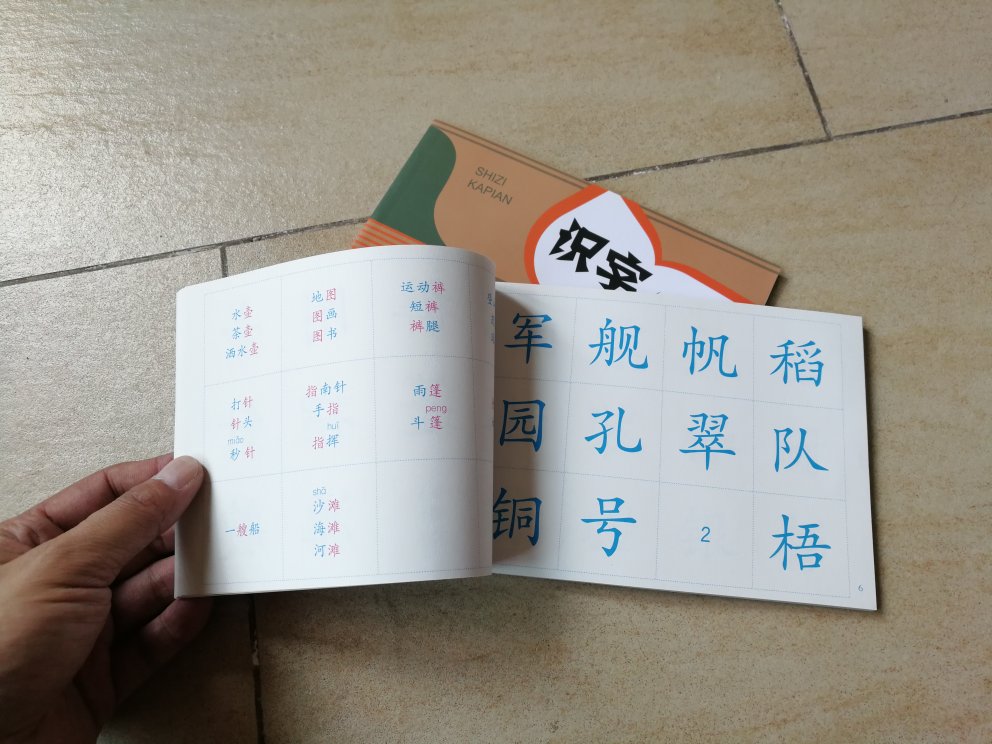 SHIZI
KAPIAN
识字
水壶
茶壶
洒水壶
地图
图画
图书
运动裤
短裤
裤腿
打针
针头
miǎo
秒针
指南针
手指
huī
指挥
雨篷
peng
斗篷
一艘船
shā
沙滩
海滩
河滩
军 舰 帆 稻
园 孔 翠 队
铜 号 2 梧
6